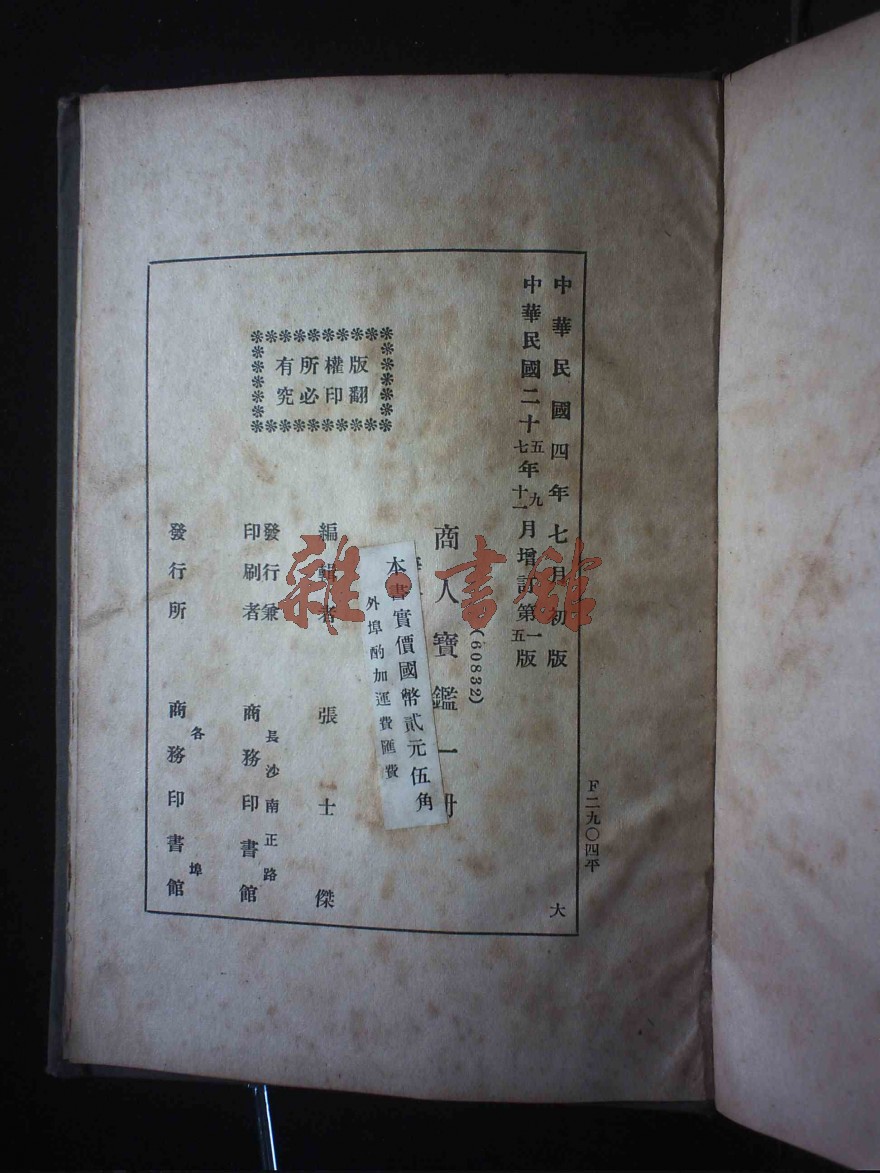 F二九〇四平
中華民國四年七月初版
中華民國二十五七年九十一月增訂第一五版
大
(60832)
商人寶鑑一冊
本書實價國幣貳元伍角
外埠酌加運費匯費
版權所有
翻印必究
編輯者 張士傑
發行兼印刷者 長沙南正路 商務印書館
發行所 各埠 商務印書館
雜·書館